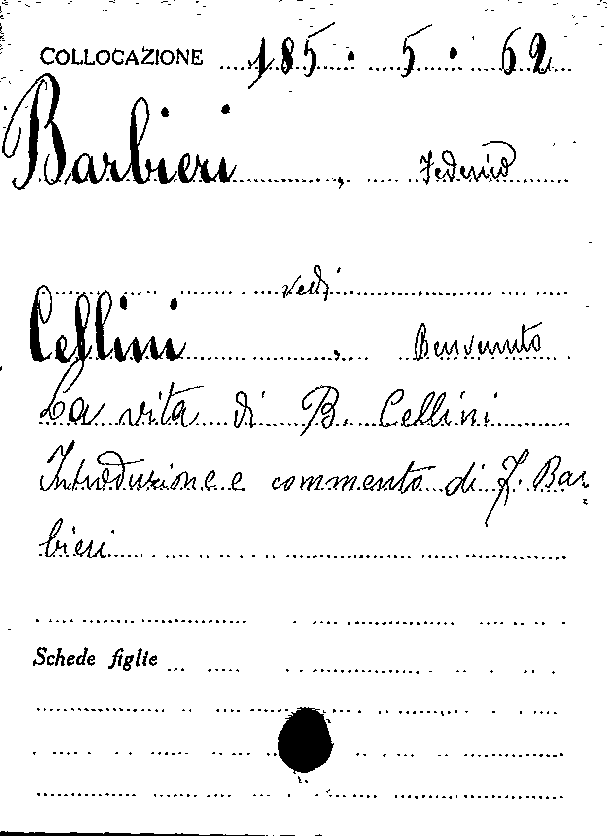 COLLOCAZIONE 185 . 5 . 62
Barbieri , Federico
vedi
Cellini , Benvenuto
La vita di B. Cellini
Introduzione e commento di F. Bar-
bieri
Schede figlie